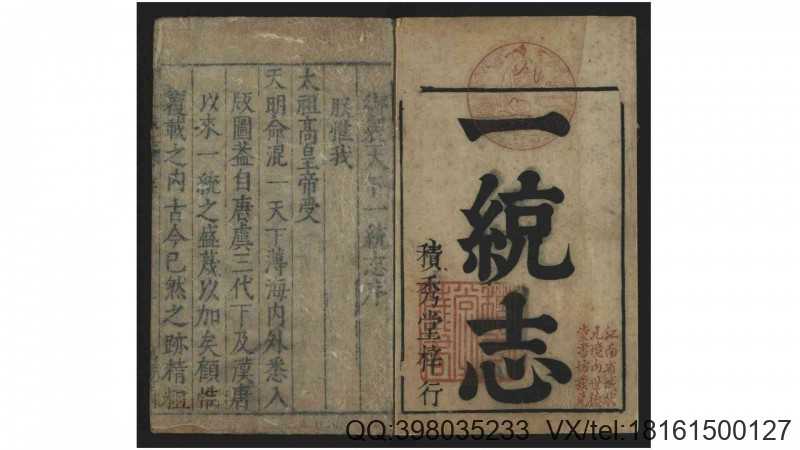 一統志
積秀堂梓行
御製天下一統志序
朕惟我
太祖高皇帝受
天明命混一天下薄海内外悉入
版圖葢自唐虞三代下及漢唐
以來一統之盛蔑以加矣顧惟
覆載之内古今已然之跡精粗
QQ:398035233 VX/tel:18161500127